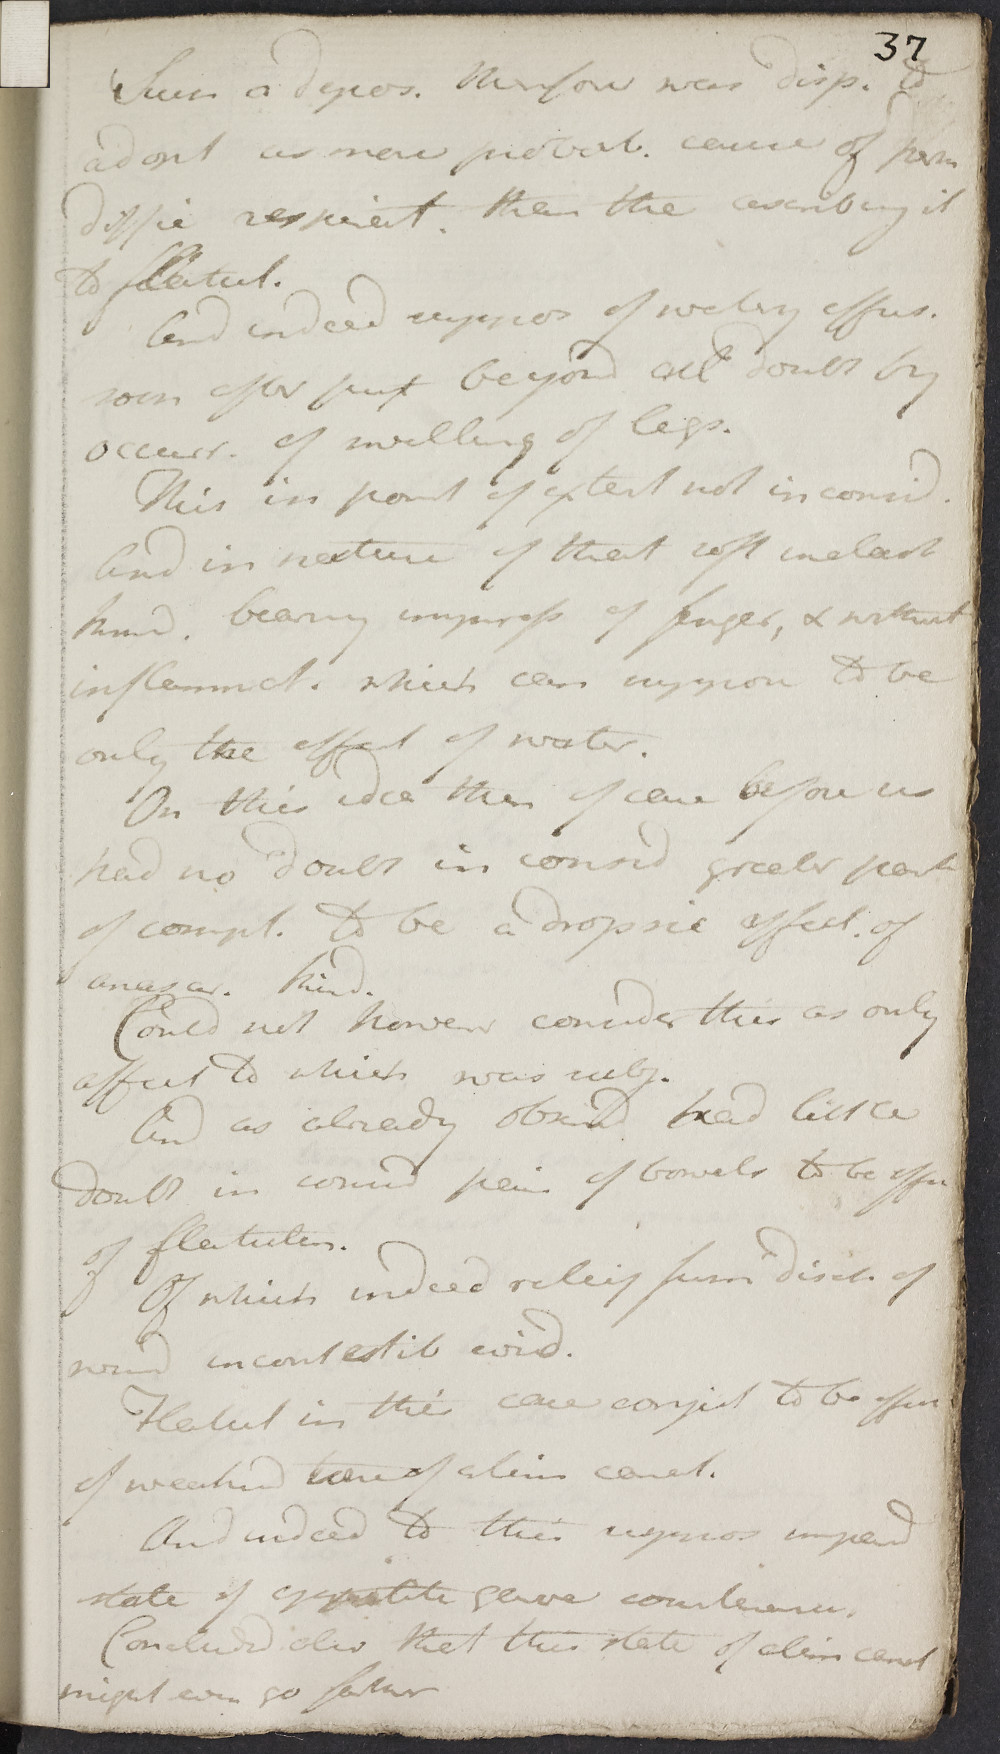 37
Such a depos. therefore was disp. to
adopt as more probab. cause of
diffic respirat. than the ascribing it
to flatul.
And indeed suppos of watry effus.
soon after put beyond all doubt by
occurr. of swelling of legs.
This in point of extent not inconsid.
And in nature of that soft inelast
kind. bearing impress of finger, & without
inflammat. which can suppose to be
only the effect of water.
On this idea then of case before us
had no doubt in consid greater part
of compl. to be a dropsic affect. of
anasar. kind.
Could not however consider this as only
affect to which was subj.
And as already observd had little
doubt in consid pain of bowels to be effec
of flatulen.
Of which indeed relief from disch. of
wind incontestib evid.
Flatul in this case conject to be effec
of weakend tone of alim canal.
And indeed to this suppos impaird
state of appetite gave countenan.
Concluded also that this state of alim canal
might even go farther